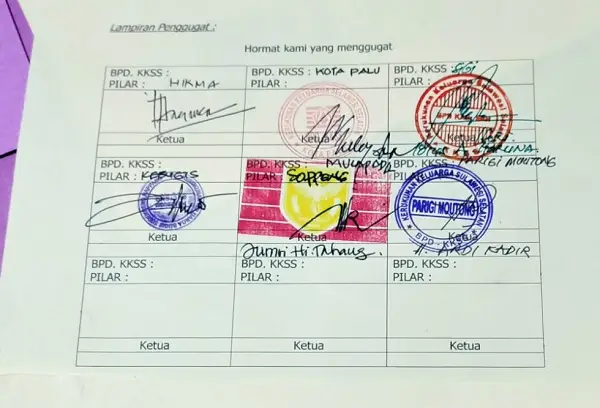 Lampiran Penggugat :
Hormat kami yang menggugat
BPD. KKSS :
PILAR : HIKMA
Ketua
BPD. KKSS : KOTA PALU
PILAR :
Ketua
BPD. KKSS : SIGI
PILAR :
Ketua
BPD. KKSS :
PILAR :
Ketua
BPD. KKSS :
PILAR : SOPPENG
Ketua
Jumri Hi. Tahang.
BPD. KKSS : PARIGI MOUTONG
PILAR :
KERUKUNAN KELUARGA SULAWESI SELATAN
PARIGI MOUTONG
BPD - KKSS
Ketua
H. ANDI KADIR
BPD. KKSS :
PILAR :
Ketua
BPD. KKSS :
PILAR :
Ketua
BPD. KKSS :
PILAR :
Ketua